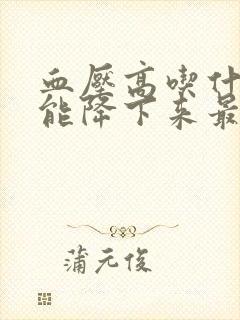 血壓高喫什
能降下来最
蒲元俊